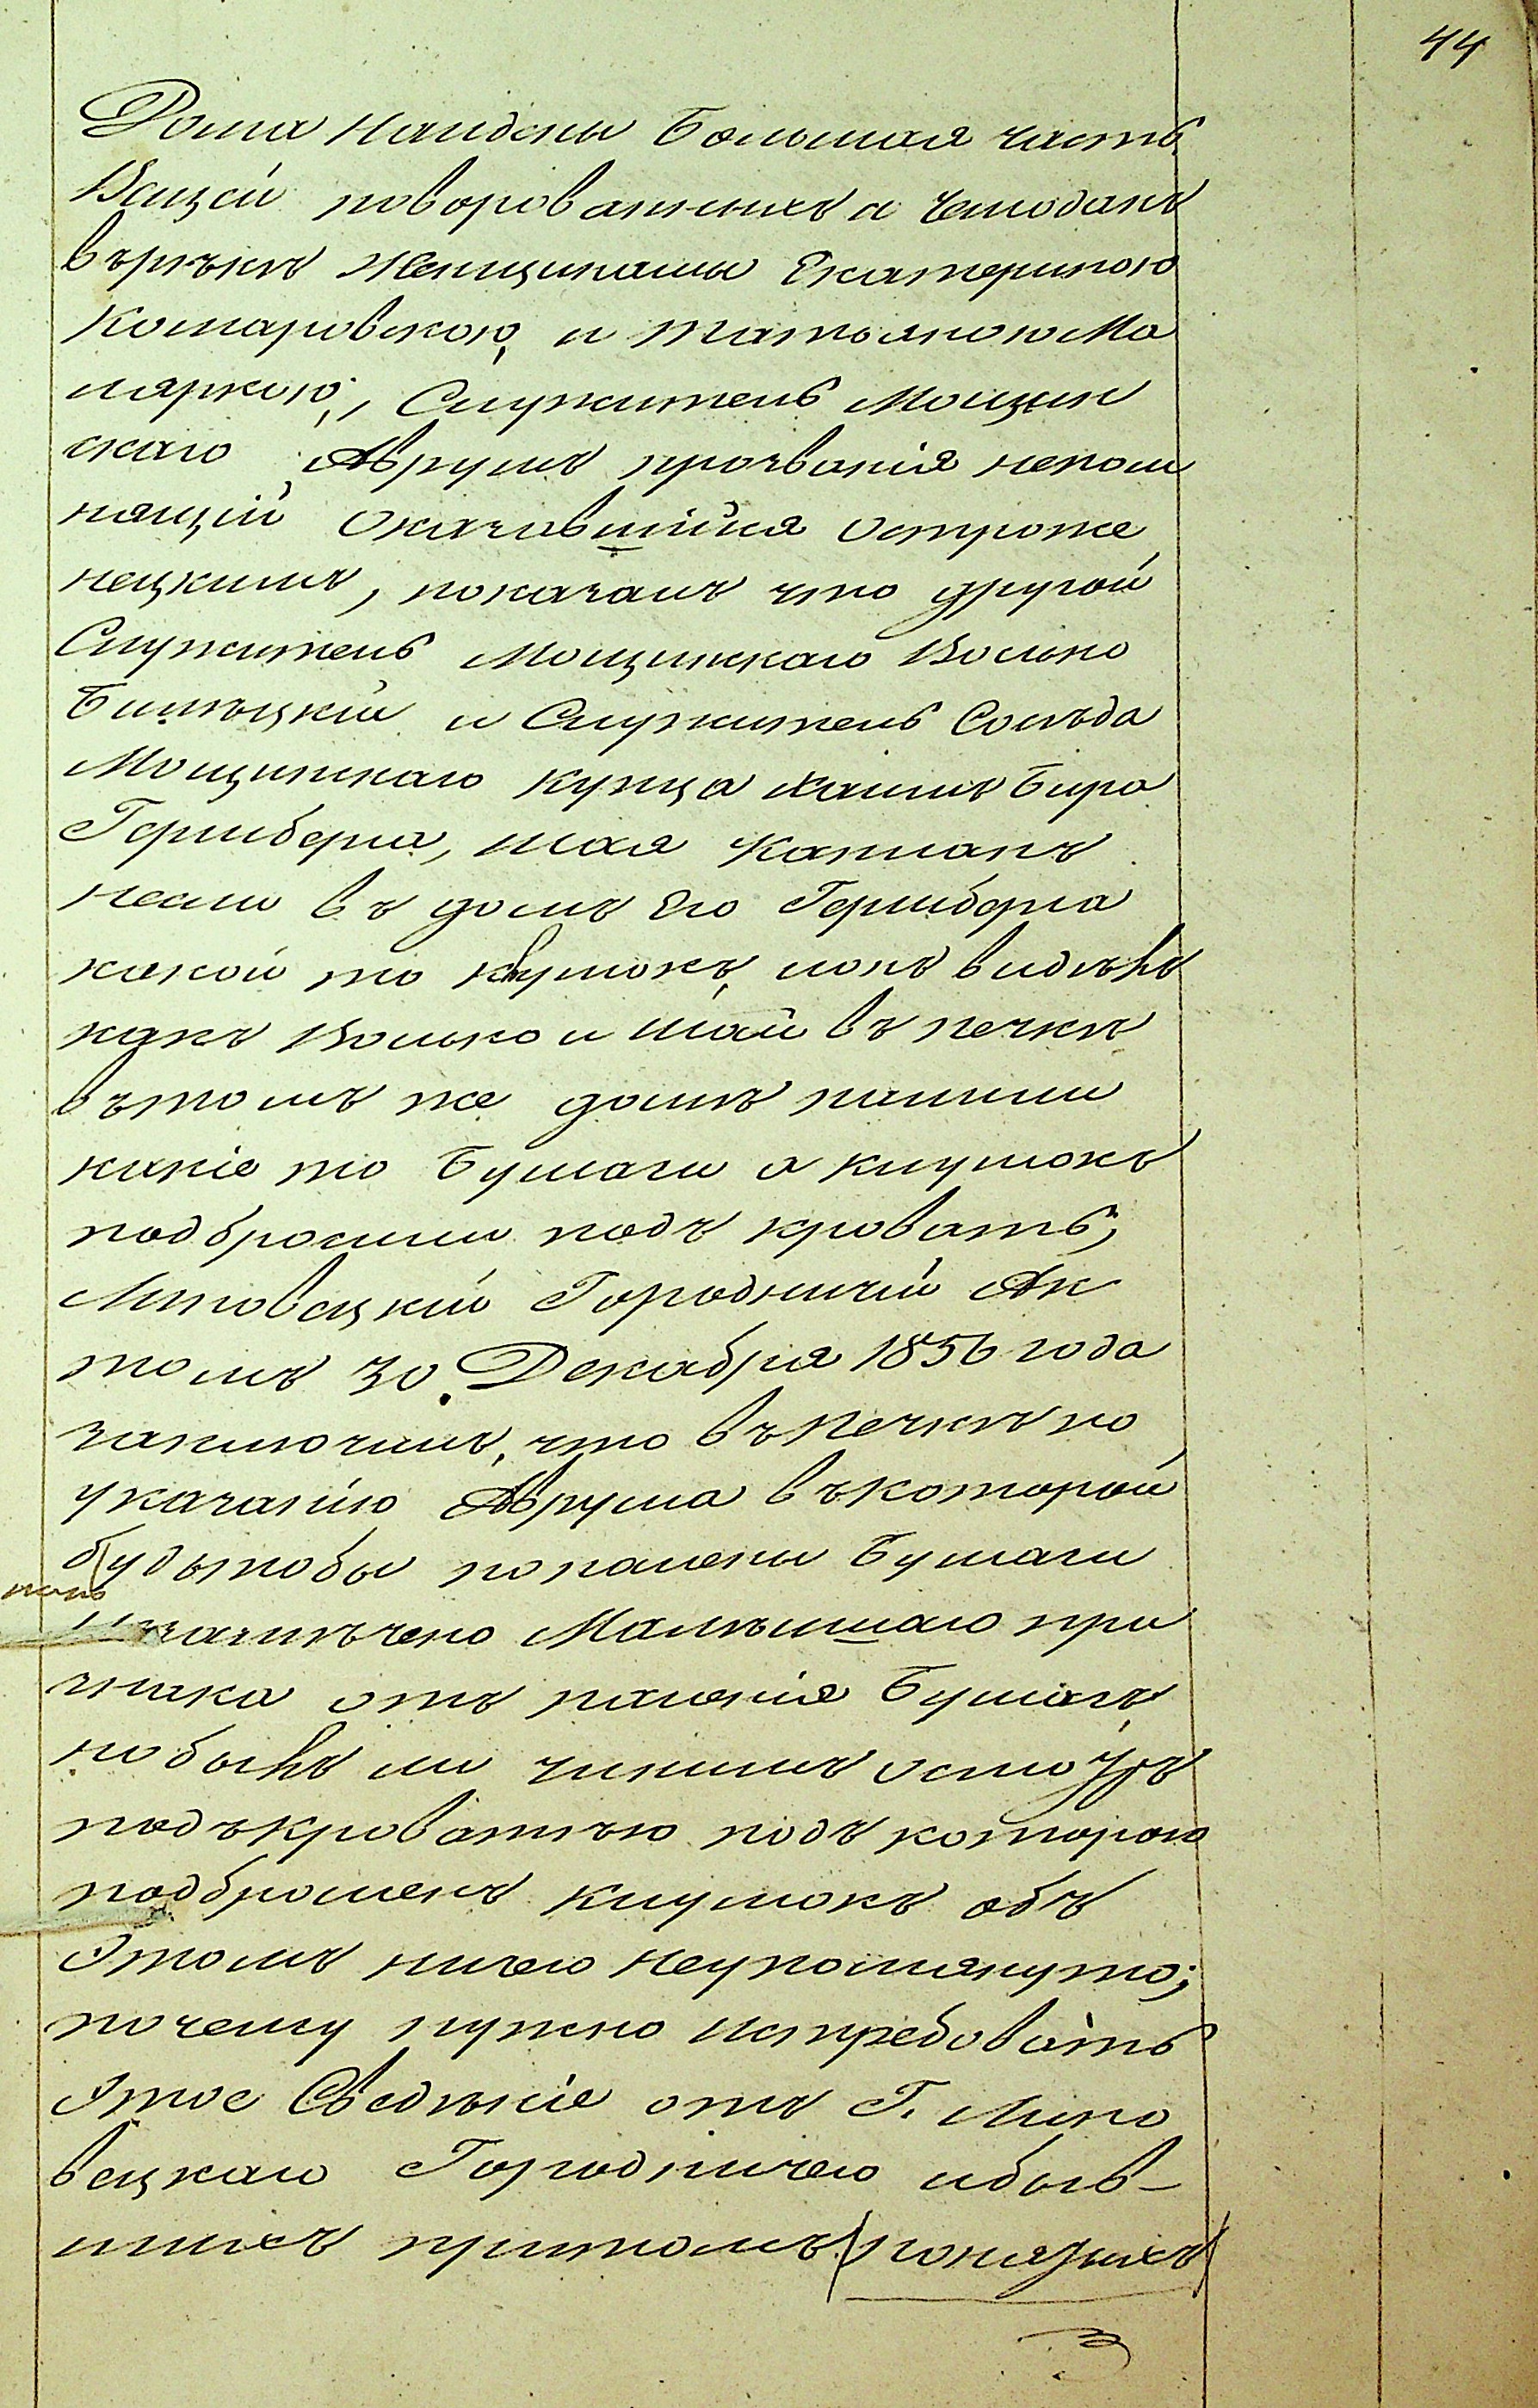 44
Дома найдены большая часть
Вещей поворованныхъ а Чемодань
върѣкѣ Женщинами Екатериною
Комаровскою, и татьяною Ма
ляркою, Служитель Мощин
скаго Аврумъ прозванія непом
нящій оказавшійся острože
нецкимъ, показалъ что другой
Служитель Мощинскаго Волько
Билѣцкій и Служитель Сосѣда
Мощинскаго купца Хаимъ Бира
Гершберга, Шая Капланъ
несли въ домъ Его Гершберга
какой то клумокъ, ионъ видѣлъ
какъ Волько и Шай въ печкѣ
вътомъ же домѣ палили
какіе то бумаги а клумокъ
подбросили подъ кровать;
Липовецкій Городничій Ак
томъ 30 Декабря 1856 года
заключилъ, что въ печкѣ по
указанію Аврума въкоторой
будьтобы попалены бумаги
незамѣчено Малѣйшаго при
знака отъ паленія бумагъ,
но былъ ли чинимъ осмотръ
подъкроватью подъ которою
подброшенъ клумокъ объ
Этомъ ничего неупомянуто;
почему нужно истребовать
Этое Сведѣніе отъ Г. Липо
вецкаго Городничего ибыв-
шихъ притомъ понятыхъ